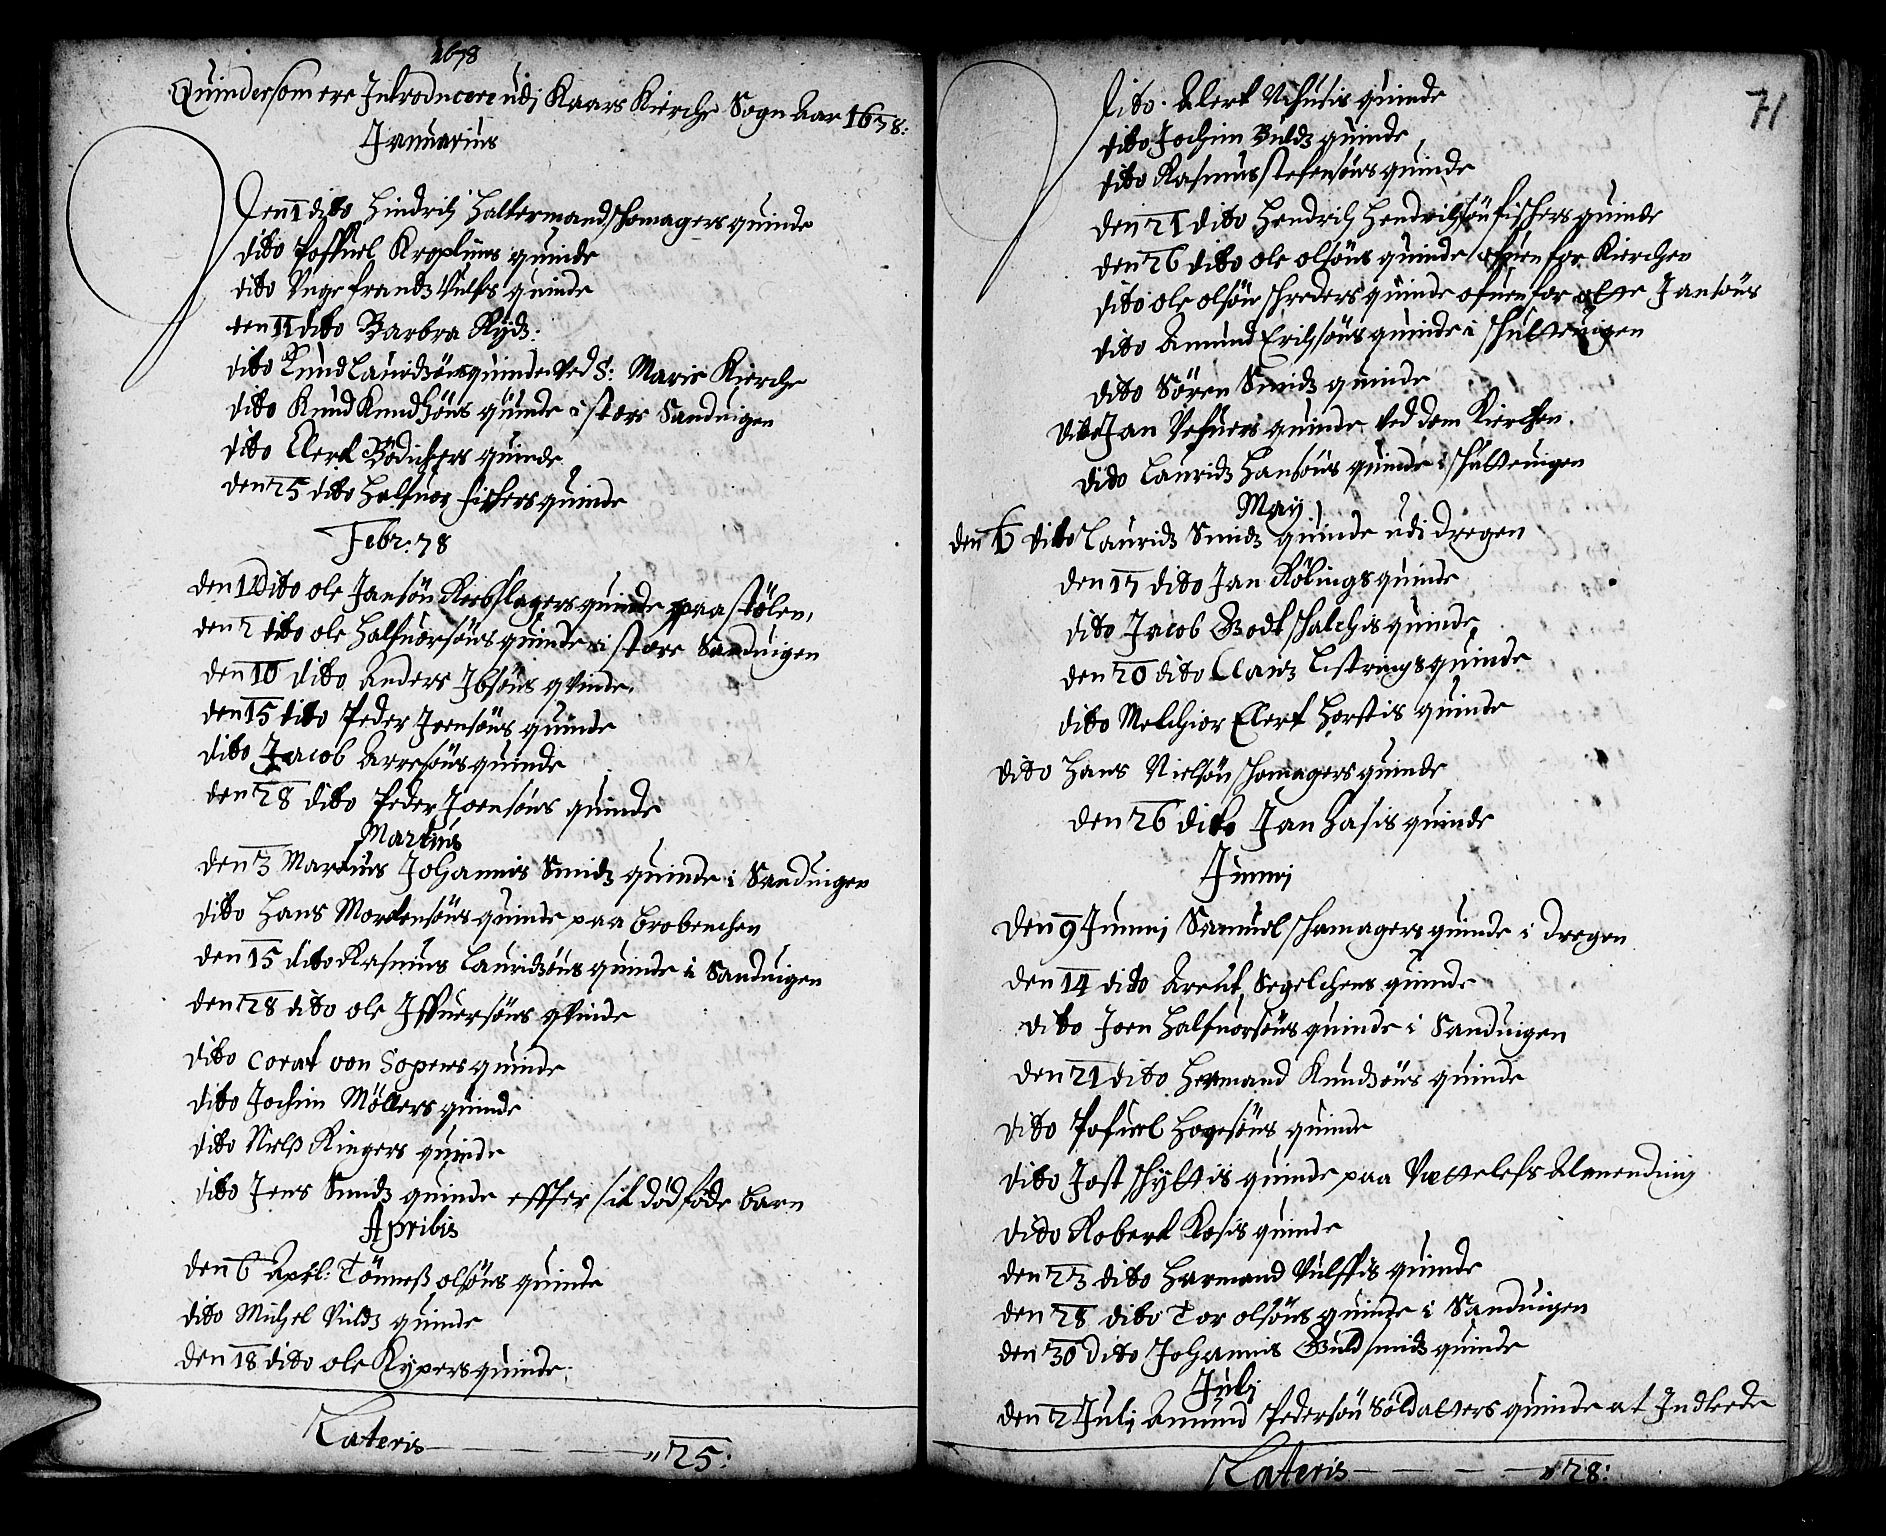 1678
Quinder som ere Introducere udj Kaars Kierche Sogn Aar 1678:
Januarius
Den 1 dito Hindrich Haltermand schomagers quinde
dito Poffuel Kroplins quinde
dito Unge frandz Vulfs quinde
den 11 dito Barbra Rydz:
dito Knud Lauridzöns quinde Ved S: Marie Kierche
dito Knud Knudtzöns quinde i store Sanduigen
dito Clert Bödichers quinde
den 25 dito Halfuor fischers quinde
Febr: 78
den 1 Dito ole Jansön Rebslagers quinde paa stölen,
den 2 dito ole Halfuorsöns quinde i store Sanduigen
den 10 dito Anders Ibsöns qvinde.
den 15 dito Peder Joensöns quinde
dito Jacob Arresöns quinde
den 28 dito Peder Joensöns quinde
Martius
den 3 Martius Johannis Smidz quinde i Sanduigen
dito Hans Mortensöns quinde paa brobenchen
den 15 dito Rasmus Lauridzöns quinde i Sanduigen
den 28 dito ole Iffuersöns qvinde
dito Corat von Sopens quinde
dito Jochim Möllers quinde
dito Nielß Ringers quinde
dito Jens Smidz quinde effter sit död föde barn
Aprilis
den 6 April: Tönneß olsöns quinde
dito Michel Vildz quinde
den 18 dito ole Kypers quinde.
Lateris — — — " 25:
71
dito. Alert quinde
dito Jochim Buldz quinde
dito Rasmus stefensöns quinde
den 21 dito Hendrich Hendrichsön fischers quinde
den 26 dito ole olsöns quinde ofuen for Kierchen
dito ole olsön schreders quinde ofuen for olle Jansöns
dito Amund Erichsöns quinde i schutteuigen
dito Sören Smidz quinde
dito Jan Vefuers quinde Ved dom Kierchen
dito Lauridz Hansöns quinde i schutteuigen
May
den 6 dito Lauridz Smidz quinde udi dregen
den 15 dito Jan Rölings quinde
dito Jacob Godt schalchis quinde
den 20 dito Clauz Listrings quinde
dito Melchior Clert Horstis quinde
dito Hans Nielsön schomagers quinde
den 26 dito Jan Hasis quinde
Junnij
den 9 Junnij Samuel schomagers quinde i dregen
den 14 dito Arent Segelchens quinde
dito Joen Halfuorsöns quinde i Sanduigen
den 21 dito Hermand Knudzöns quinde
dito Pofuel Hogesöns quinde
dito Jost schyttis quinde paa Vettelefs Almending
dito Robert Kosis quinde
den 23 dito Harmand Vulffis quinde
den 28 dito Tor olsöns quinde i Sanduigen
den 30 Dito Johannis Guldsmidz quinde
Julj
den 2 Julj Amund Pedersön Soldatters quinde at Indleede
Lateris — — — " 28: